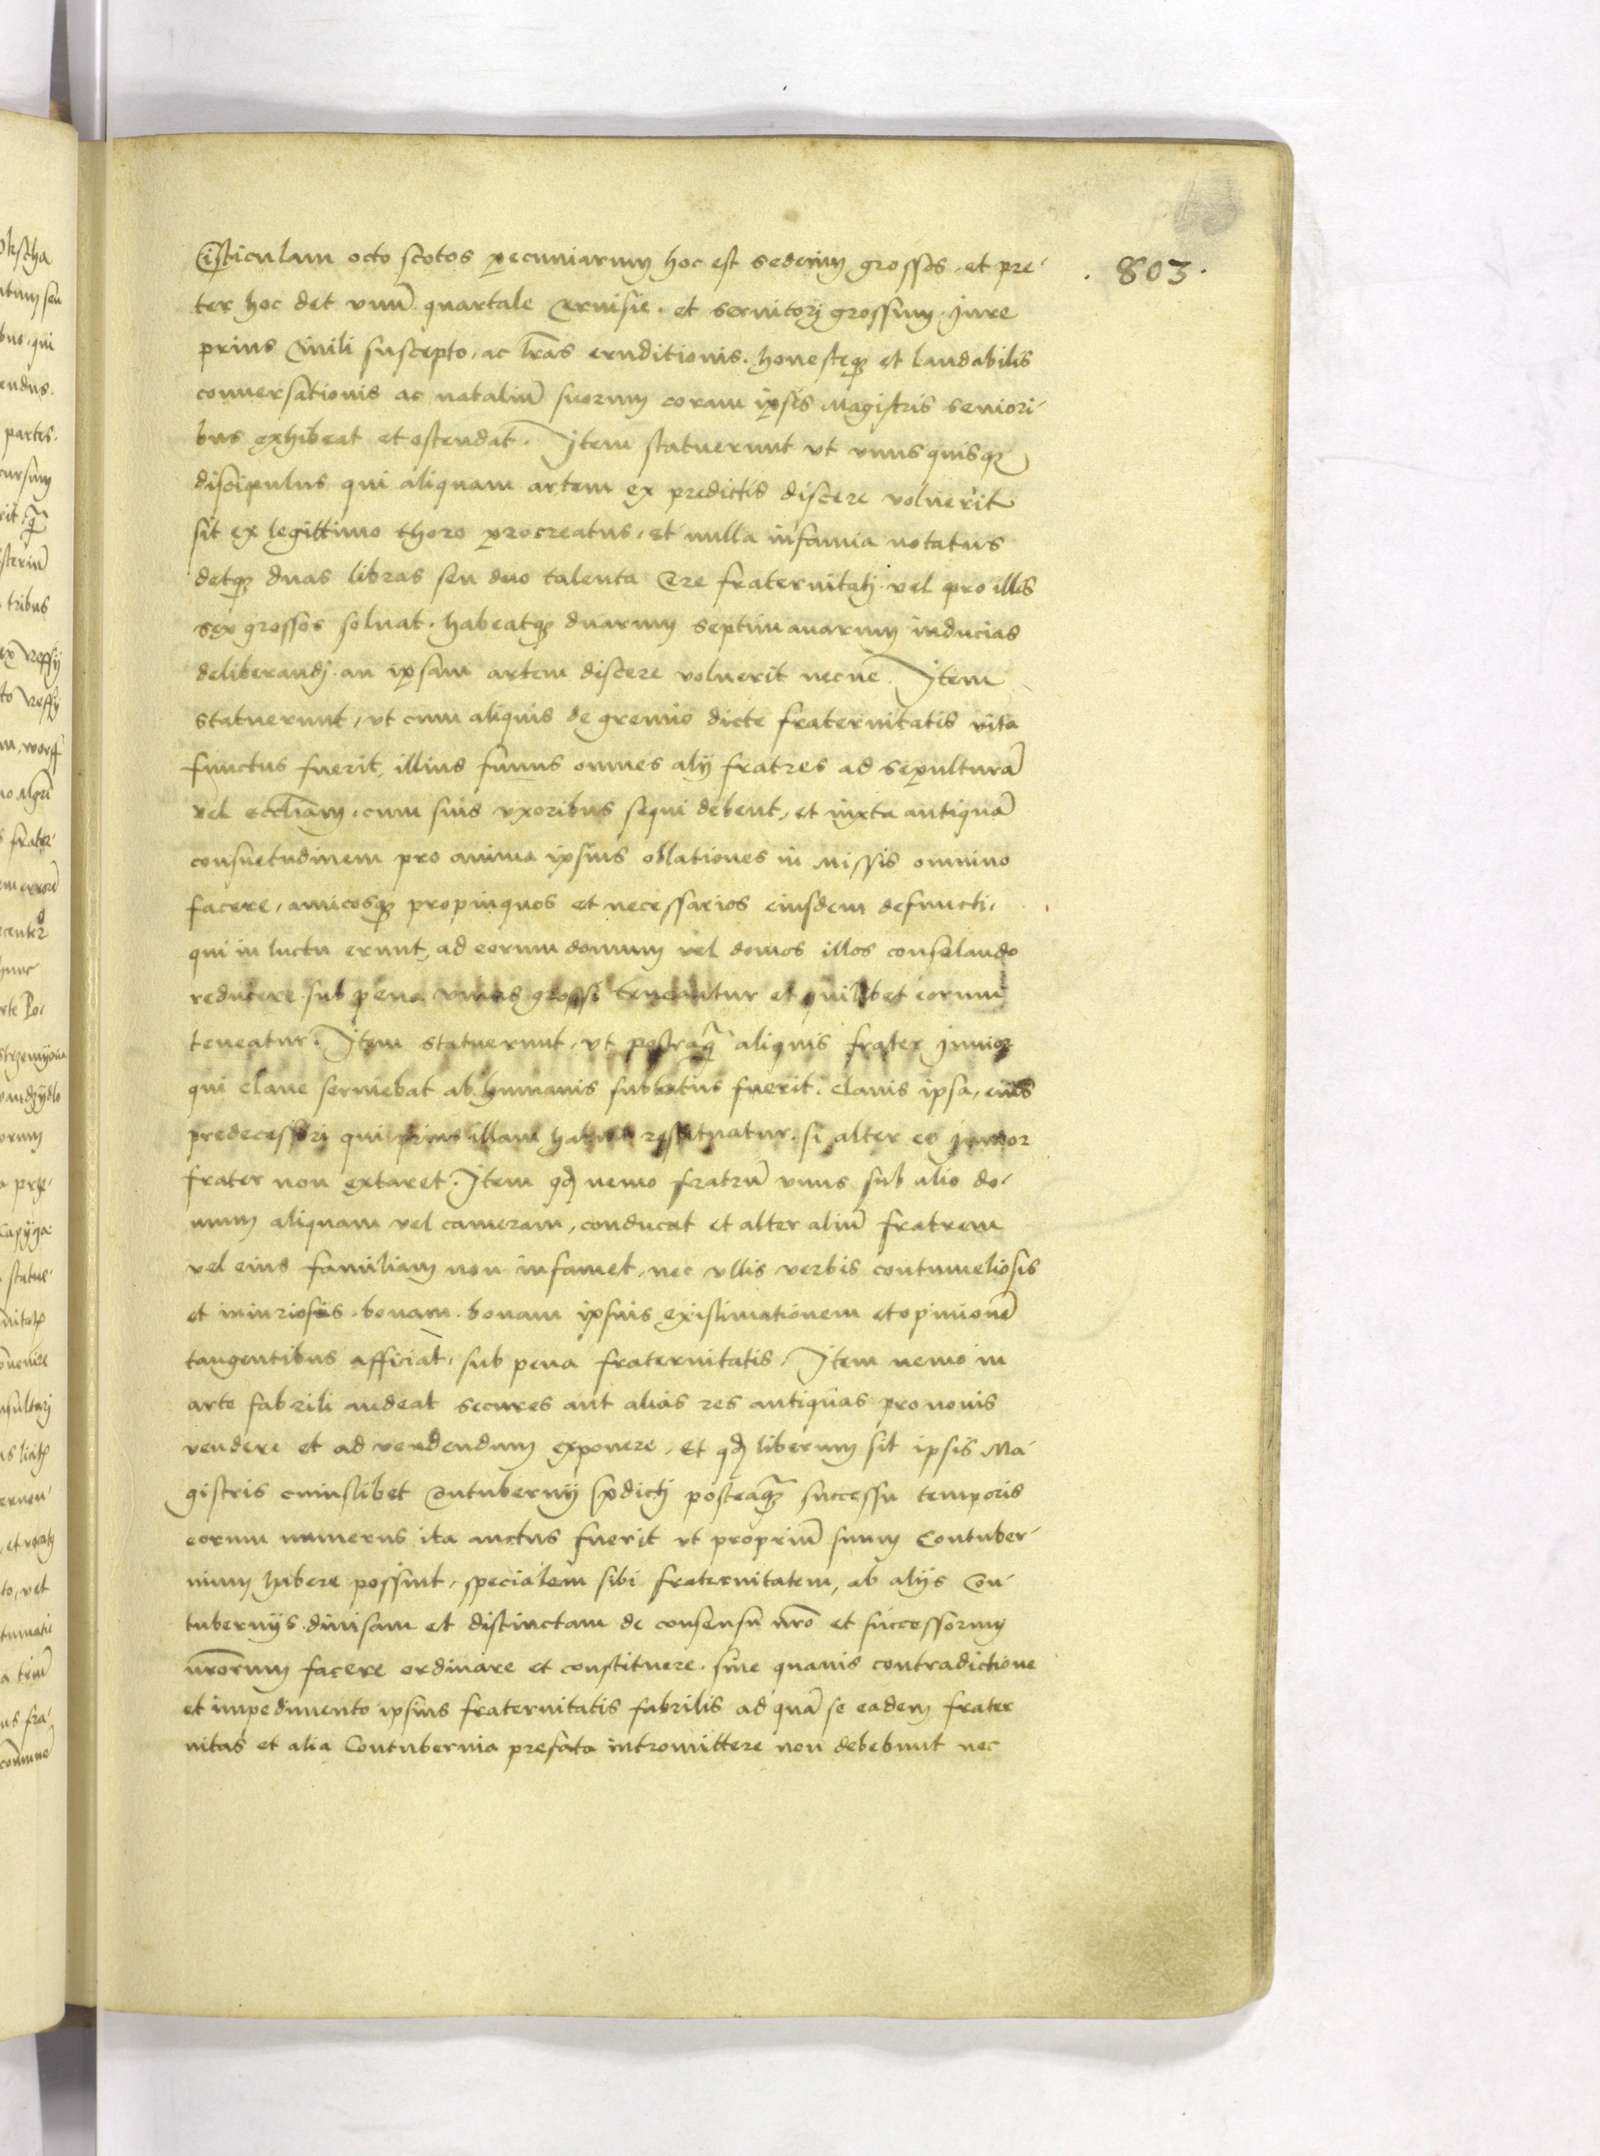 Cisticulam octo scotos pecuniarum hoc est sedecim grossos, et pre-
. 803 .
ter hoc det vnu̅ quartale Ceruisie. et seruitorj grossum. Jure
prius Ciuili suscepto, ac lr̅as eruditionis. honesteqꝫ et laudabilis
conuersationis ac nataliu̅ suorum coram ipsis Magistris seniori-
bus exhibeat et ostendat. Item statuerunt vt vnusquisqꝫ
discipulus qui aliquam artem ex predictis discere voluerit
sit ex legittimo thoro procreatus, et nulla infamia notatus
detqꝫ duas libras seu duo talenta Cere fraternitatj. vel pro illis
sex grossos soluat. habeatqꝫ duarum septimanarum inducias
deliberandj. an ipsam artem discere voluerit necne. Item
statuerunt, vt cum aliquis de gremio dicte fraternitatis vita
functus fuerit, illius funus omnes alij fratres ad sepultura̅
vel eccl̅iam, cum suis vxoribus sequi debent, et iuxta antiqua̅
consuetudinem pro anima ipsius oblationes in Missis omnino
facere, amicosqꝫ propinquos et necessarios eiusdem defuncti,
qui in luctu erunt, ad eorum domum vel domos illos consolando
reducere sub pena vnius grossi teneantur et quilibet eorum
teneatur. Item statuerunt, vt postqua̅ aliquis frater Junior
qui claue seruiebat ab humanis sublatus fuerit. Clauis ipsa, eius
predecessori qui prius illam habuit restituatur. si alter eo junior
frater non extaret. Item qđ nemo fratru̅ vnus sub alio do-
mum aliquam vel cameram, conducat et alter aliu̅ fratrem
vel eius familiam non infamet, nec vllis verbis contumeliosis
et iniuriosis. bonam. bonam ipsius existimationem et opinione̅
tangentibus afficiat, sub pena fraternitatis. Item nemo in
arte fabrili audeat secures aut alias res antiquas pro nouis
vendere et ad vendendum exponere, Et qđ liberum sit ipsis Ma-
gistris cuiuslibet Contubernij p̅dictj posteaqua̅ successu temporis
eorum numerus ita auctus fuerit vt propriu̅ suum Contuber-
nium habere possint, specialem sibi fraternitatem, ab alijs Con-
tubernijs diuisam et distinctam de consensu nr̅o et successorum
nr̅orum facere ordinare et constituere. sine quauis contradictione
et impedimento ipsius fraternitatis fabrilis ad qua̅ se eadem frater
nitas et alia Contubernia prefata intromittere non debebunt nec